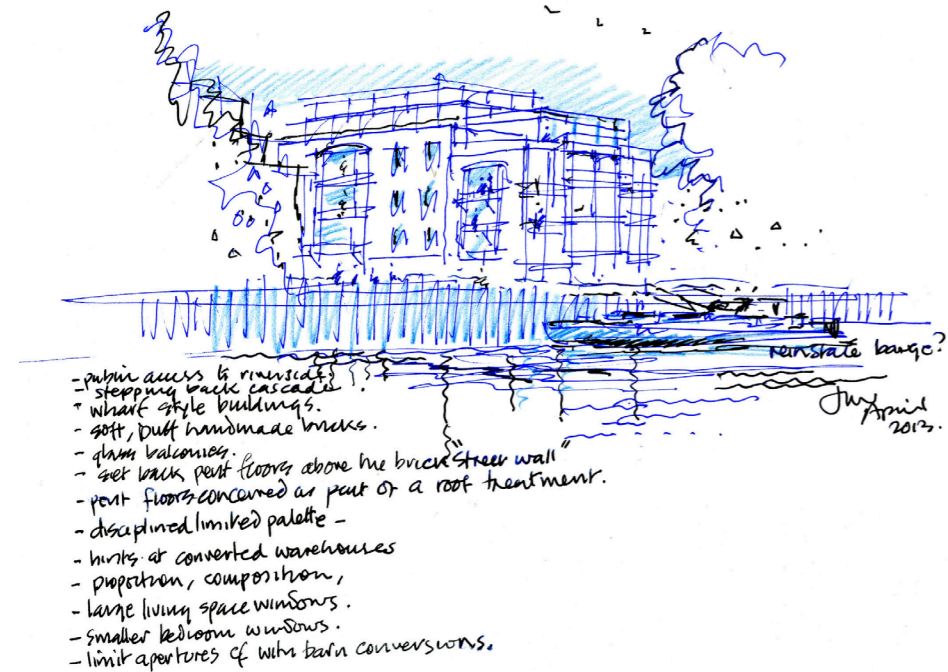 reinstate barge?
April
2013.
- public access to riverside
- stepping back cascade
- wharf style buildings.
- soft, buff handmade bricks.
- glass balconies.
- set back pent floors above the brick "street wall"
- pent floors conceived as part of a roof treatment.
- disciplined limited palette -
- hints at converted warehouses
- proportion, composition,
- large living space windows.
- smaller bedroom windows.
- limit apertures cf with barn conversions.